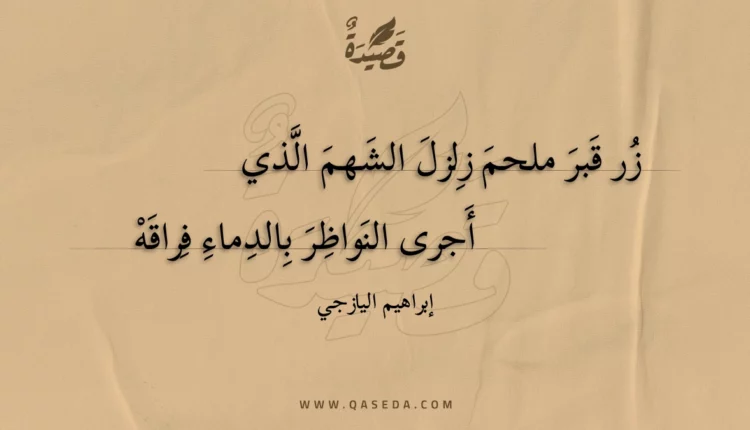 قَصِيدَةٌ
زُر قَبرَ ملحمَ زِلزلَ الشَهمَ الَّذي
أَجرى النَواظِرَ بِالدِماءِ فِراقَهْ
إبراهيم اليازجي
WWW.QASEDA.COM